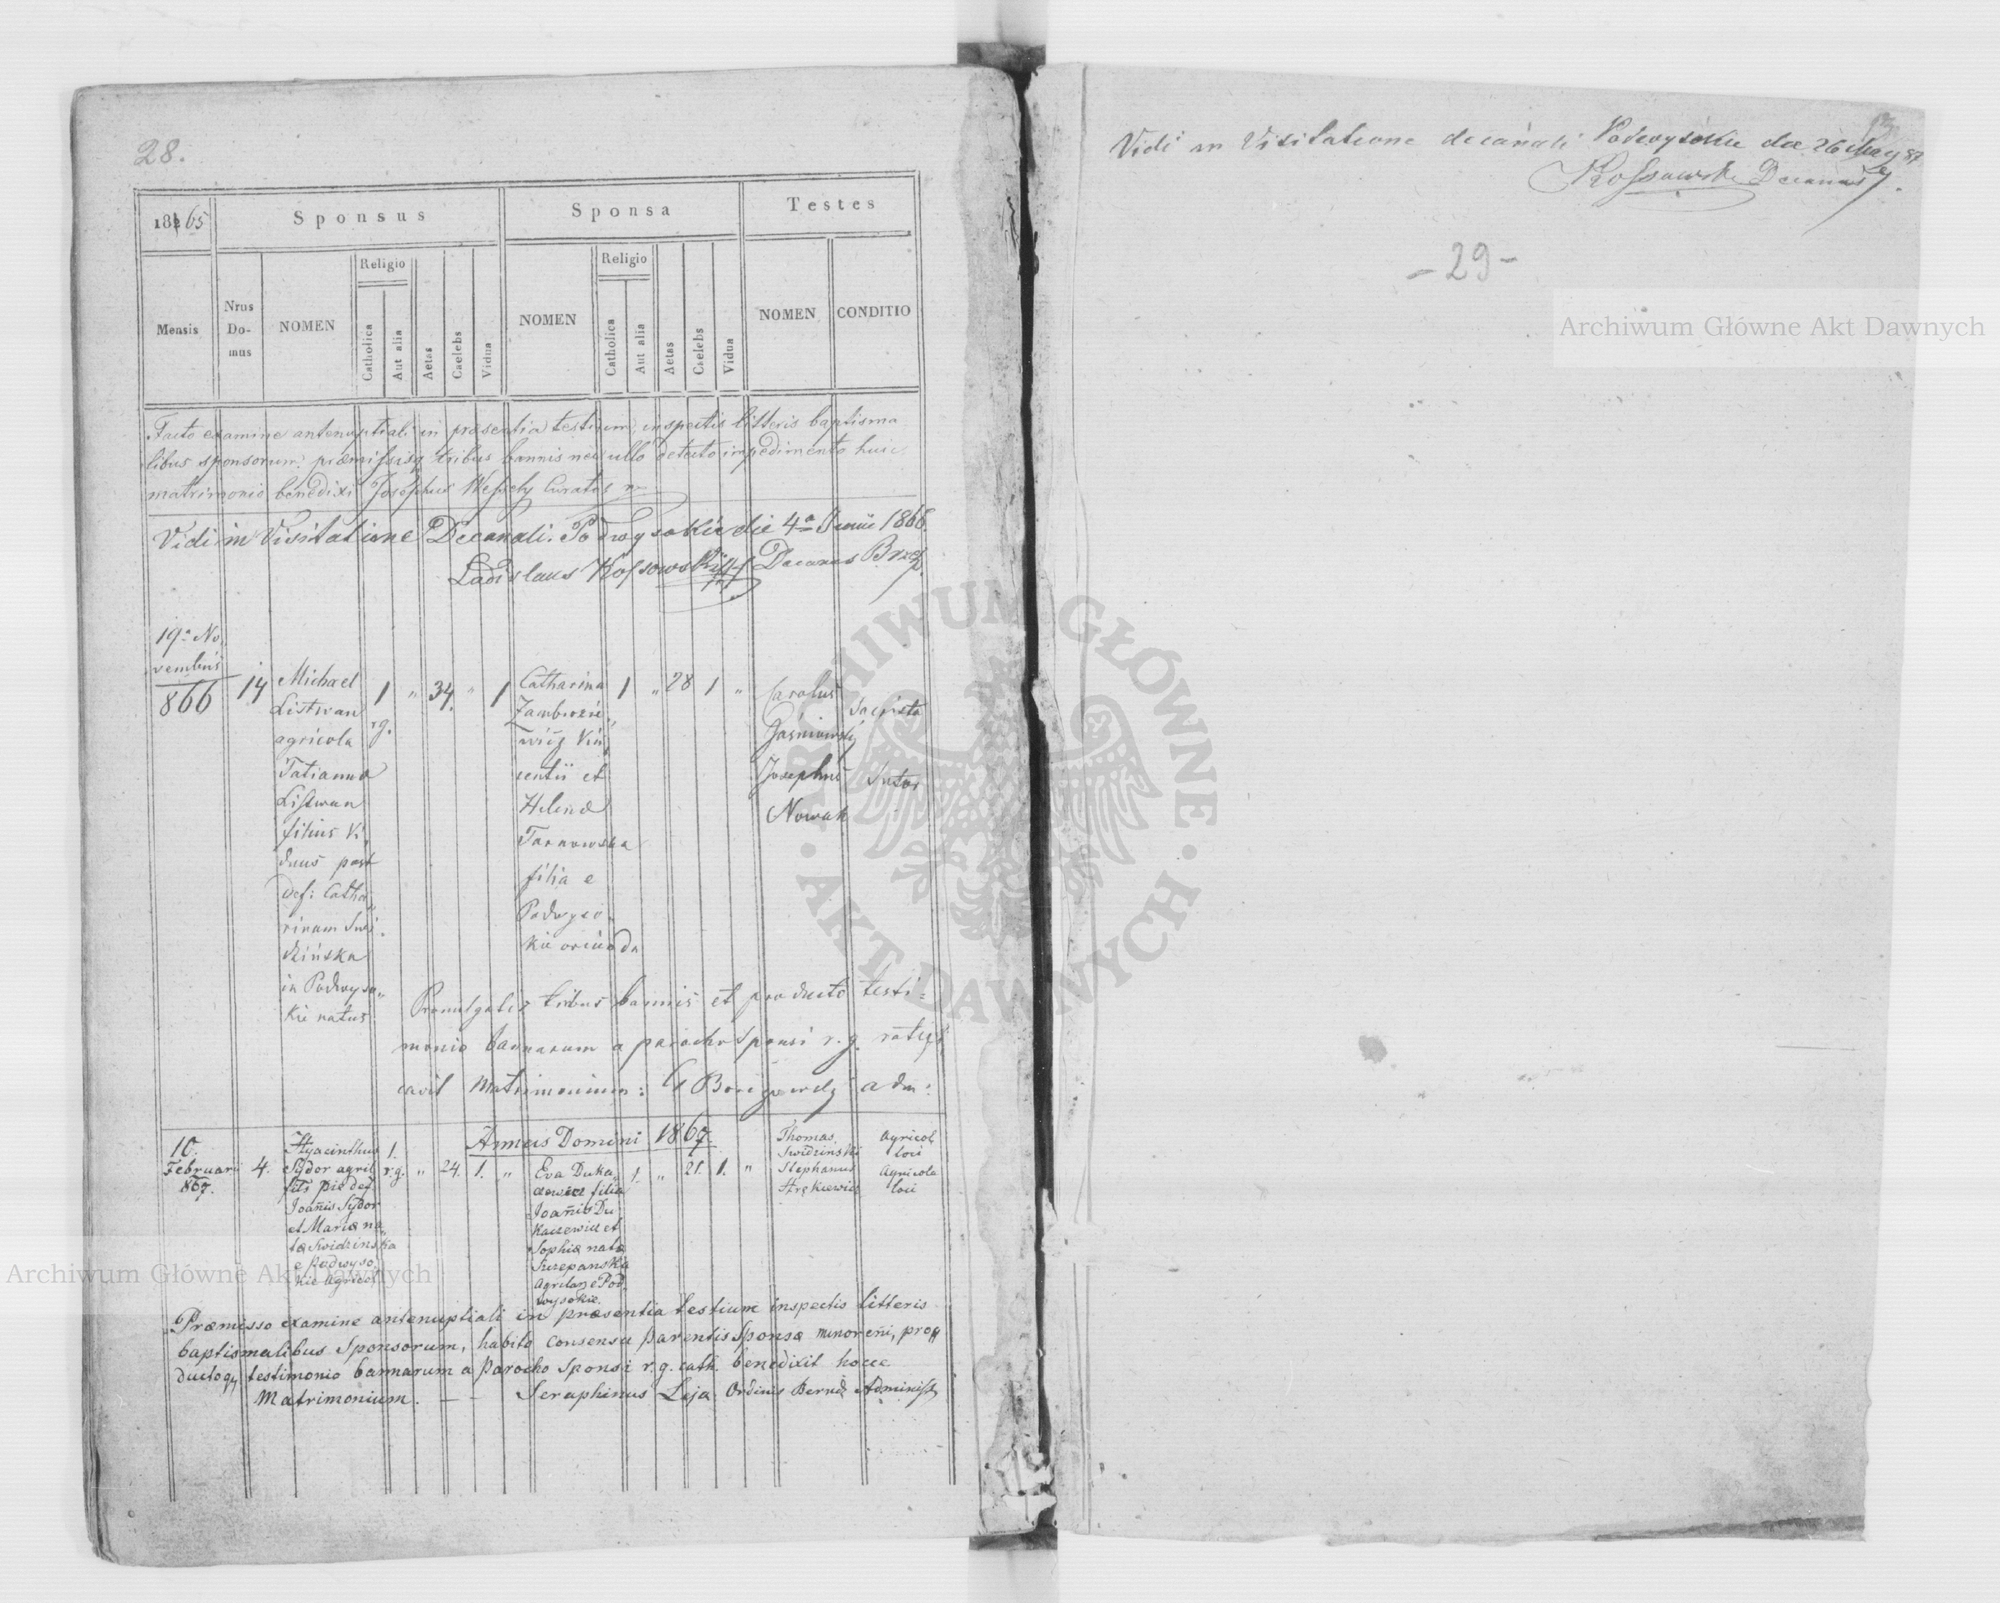 28.
1865
Sponsus
Sponsa
Testes
Mensis
Nrus Do- mus
NOMEN
Religio
Catholica
Aut alia
Aetas
Caelebs
Vidua
NOMEN
Religio
Catholica
Aut alia
Aetas
Caelebs
Vidua
NOMEN
CONDITIO
Facto examine antenuptiali in præsentia testium, inspectis litteris baptisma
libus sponsorum, præmissisq tribus bannis nec ullo detecto impedimento huic
matrimonio benedixi Josephus Wessely Curatus
Vidi in Visitatione Decanali. Podwysokie die 4a Junii 1866.
Ladislaus Kossowski Decanus Brzeż.
19a No
vembris
866
14
Michael
Listwan
agricola
Tatianna
Listwan
filius Vi
duus post
def: Catha„
rinam Swi
dzińska
in Podwyso„
kie natus
1
rg.
"
34.
"
1
Catharina
Zambrzie„
wicz Vin
centii et
Helena
Tarnowska
filia e
Podwyso
kie oriunda
1
"
28
1
"
Carolus
Gaśniowski
Josephus
Nowak
Sacrista
Sutor
Promulgatis tribus bannis et producto testi=
monio bannorum a parocho sponsi r.g. ratifi
cavit Matrimonium: adm:
Annus Domini 1867
10.
Februarii
867.
4.
Hyacinthus
Sydor agril
fils pie def
Joañis Sydor
et Mariæ na
tæ Swidzinska
e Podwyso
kie Agricol
1.
r.g.
"
24.
1.
"
Eva Duka
czewicz filia
Joañis Du
kaczewicz et
Sophiæ nata
Szczepanska
Agrilar e Pod
wysokie.
1.
"
21.
1.
"
Thomas
Swidzinski
Stephanus
Hrękiewicz
Agricol
loci
Agricola
loci
Præmisso examine antenuptiali in præsentia testium inspectis litteris
baptismalibus Sponsorum, habito consensu parentis Sponsæ minoreñi, pro
ductoq testimonio bannorum a Parocho Sponsi r.g. cath. benedixit hocce
Matrimonium. — — Seraphinus Leja Ordinis Bernd Administ
Vidi in Visitatione decanali Podwysokie die 26 May 87
Kossowski Decanus
- 29 -
Archiwum Główne Akt Dawnych
ARCHIWUM GŁÓWNE · AKT DAWNYCH ·
Archiwum Główne Akt Dawnych